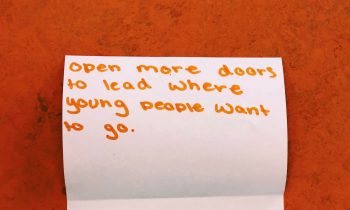 open more doors
to lead where
young people want
to go.